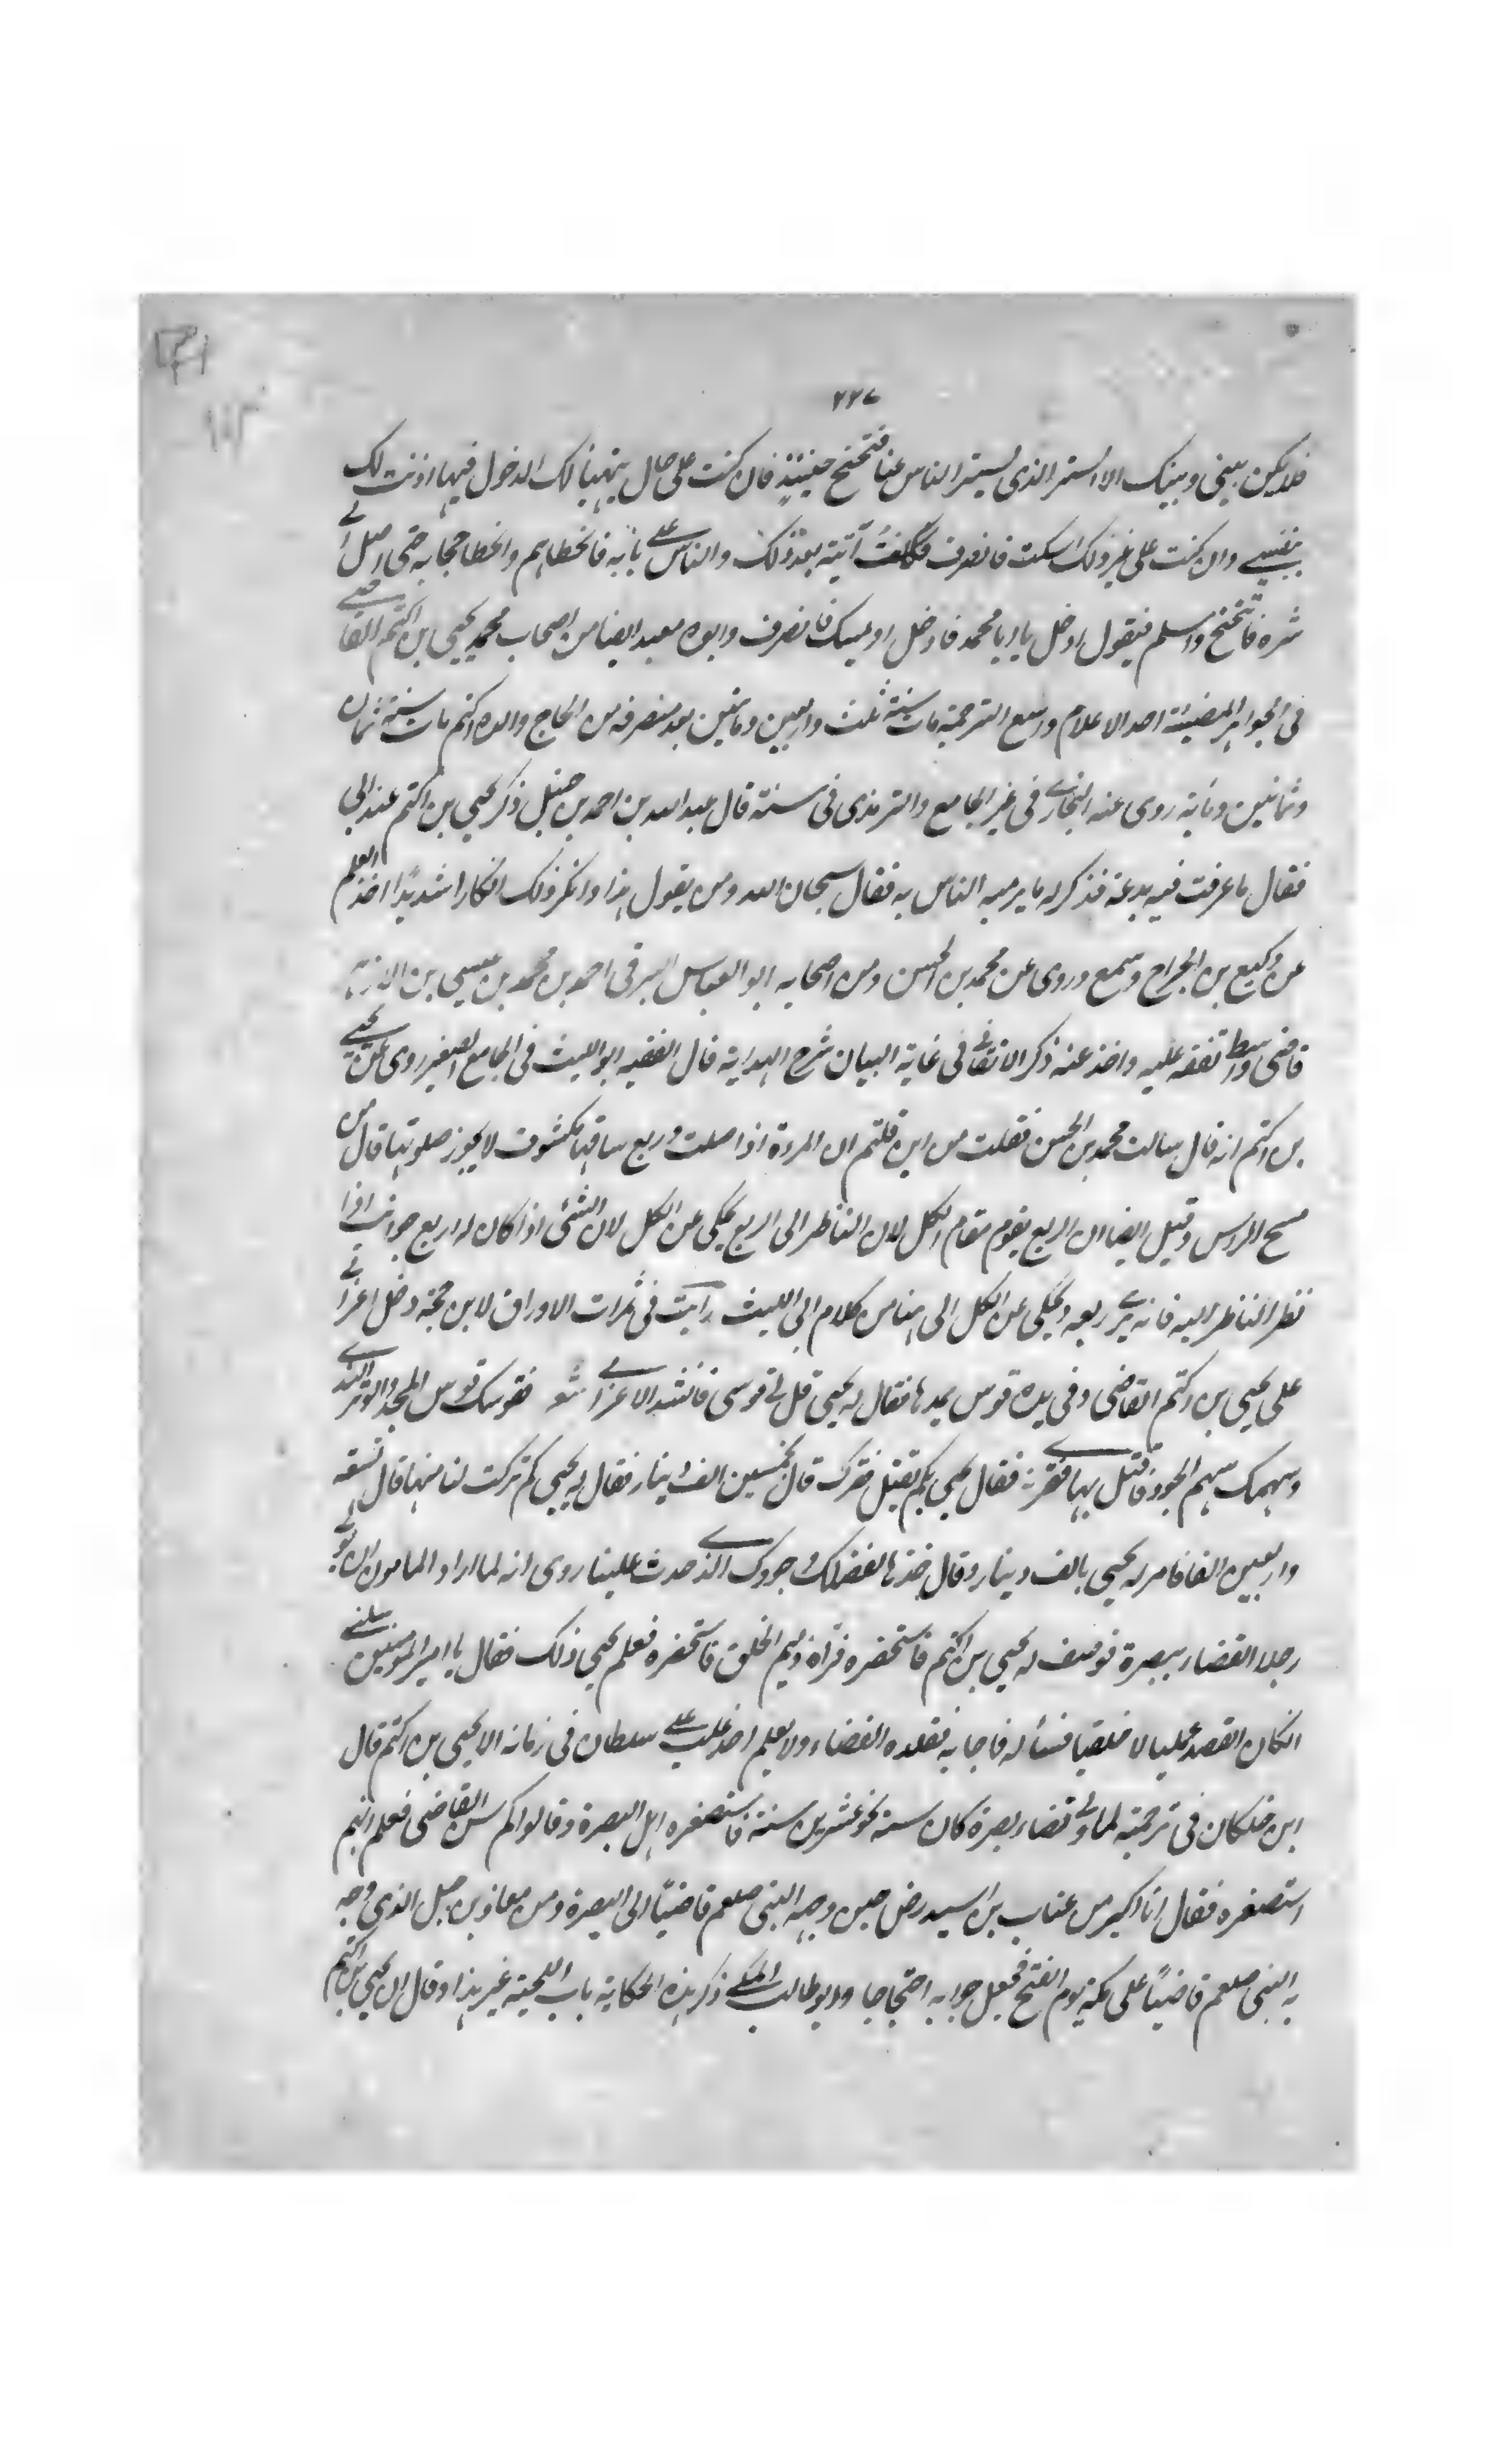 ٢٢٧
فلا يكن بيني وبينك الا الستر الذي يستر الناس عنا فتنحنح حينئذ فان كنت على حال يتهيا لك الدخول فيها اذنت لك
بنفسي وان كنت على غير ذلك اسكت فانصرف فكنت آتيه بعد ذلك والناس على بابه فاتخطاهم واتخطا حجابه حتى اصل الى
ستره فاتنحنح واسلم فيقول ادخل يا ابا محمد فادخل او يمسك فانصرف وابوه معبد ايضا من اصحاب محمد يحيى بن اكثم القاضي
في الجواهر المضيئة احد الاعلام واسع الترجمة مات سنة ثلث واربعين ومائتين بعد منصرفه من الحاج والده اكثم مات سنة ثمان
وثمانين ومائة روى عنه البخاري في غير الجامع والترمذي في سننه قال عبد الله بن احمد بن حنبل ذكر يحيى بن اكثم عند ابي
فقال ما عرفت فيه بدعة فذكر له ما يرميه الناس به فقال سبحان الله ومن يقول هذا وانكر ذلك انكارا شديدًا اخذ العلم
عن وكيع بن الجراح وسمع وروى عن محمد بن الحسن ومن اصحابه ابو العباس البرقي احمد بن محمد بن عيسى بن الازهر
قاضي واسط تفقه عليه واخذ عنه ذكر الاتقاني في غاية البيان شرح الهداية قال الفقيه ابو الليث في الجامع الصغير روى عن يحيى
بن اكثم انه قال سالت محمد بن الحسن فقلت من اين قلتم ان المرءة اذا صلت وربع ساقها مكشوف لا يجوز صلوتها قال من
مسح الراس وقيل ايضا ان الربع يقوم مقام الكل لان الناظر الى الربع يحكي عن الكل لان الشئ اذا كان له اربع جوانب اذا
نظر الناظر اليه فانه يرى ربعه ويحكي عن الكل الى هنا من كلام ابي الليث رايت في ثمرات الاوراق لابن حجة دخل اعرابي
على يحيى بن اكثم القاضي وفي يده قوس يمدها فقال له يحيى قل في قوسي فانشد الاعرابي شعر فقوسك قوس المجد والوتر الندى
وسهمك سهم الجود فاقتل بها فقرى فقال يحيى بكم يقتل فقرك قال بخمسين الف دينار فقال له يحيى كم تركت لنا منها قال تسعة
واربعين الفا فامر له يحيى بالف دينار وقال خذها لفضلك وجودك الذي حدث علينا روى انه لما اراد المامون ان يولي
رجلا القضاء ببصرة فوصف له يحيى بن اكثم فاستحضره فرآه ذميم الخلق فاستحقره فعلم يحيى ذلك فقال يا امير المومنين سلني
انكان القصد علميا لا خلقيا فسأله فاجابه فقلده القضاء ولا يعلم احد غلب على سلطان في زمانه الا يحيى بن اكثم قال
ابن خلكان في ترجمته لما ولي قضاء بصرة كان سنه نحو عشرين سنة فاستصغره اهل البصرة وقالوا كم سن القاضي فعلم انهم
استصغره فقال انا اكبر من عتاب بن اسيد رض حين وجهه النبي صلعم قاضيًا الى البصرة ومن معاذ بن جبل الذي وجه
به النبي صلعم قاضيًا على مكة يوم الفتح فجعل جوابه احتجاجا وابو طالب المكي ذكر هذه الحكاية باب اللحية غير هذا وقال ان يحيى بن اكثم